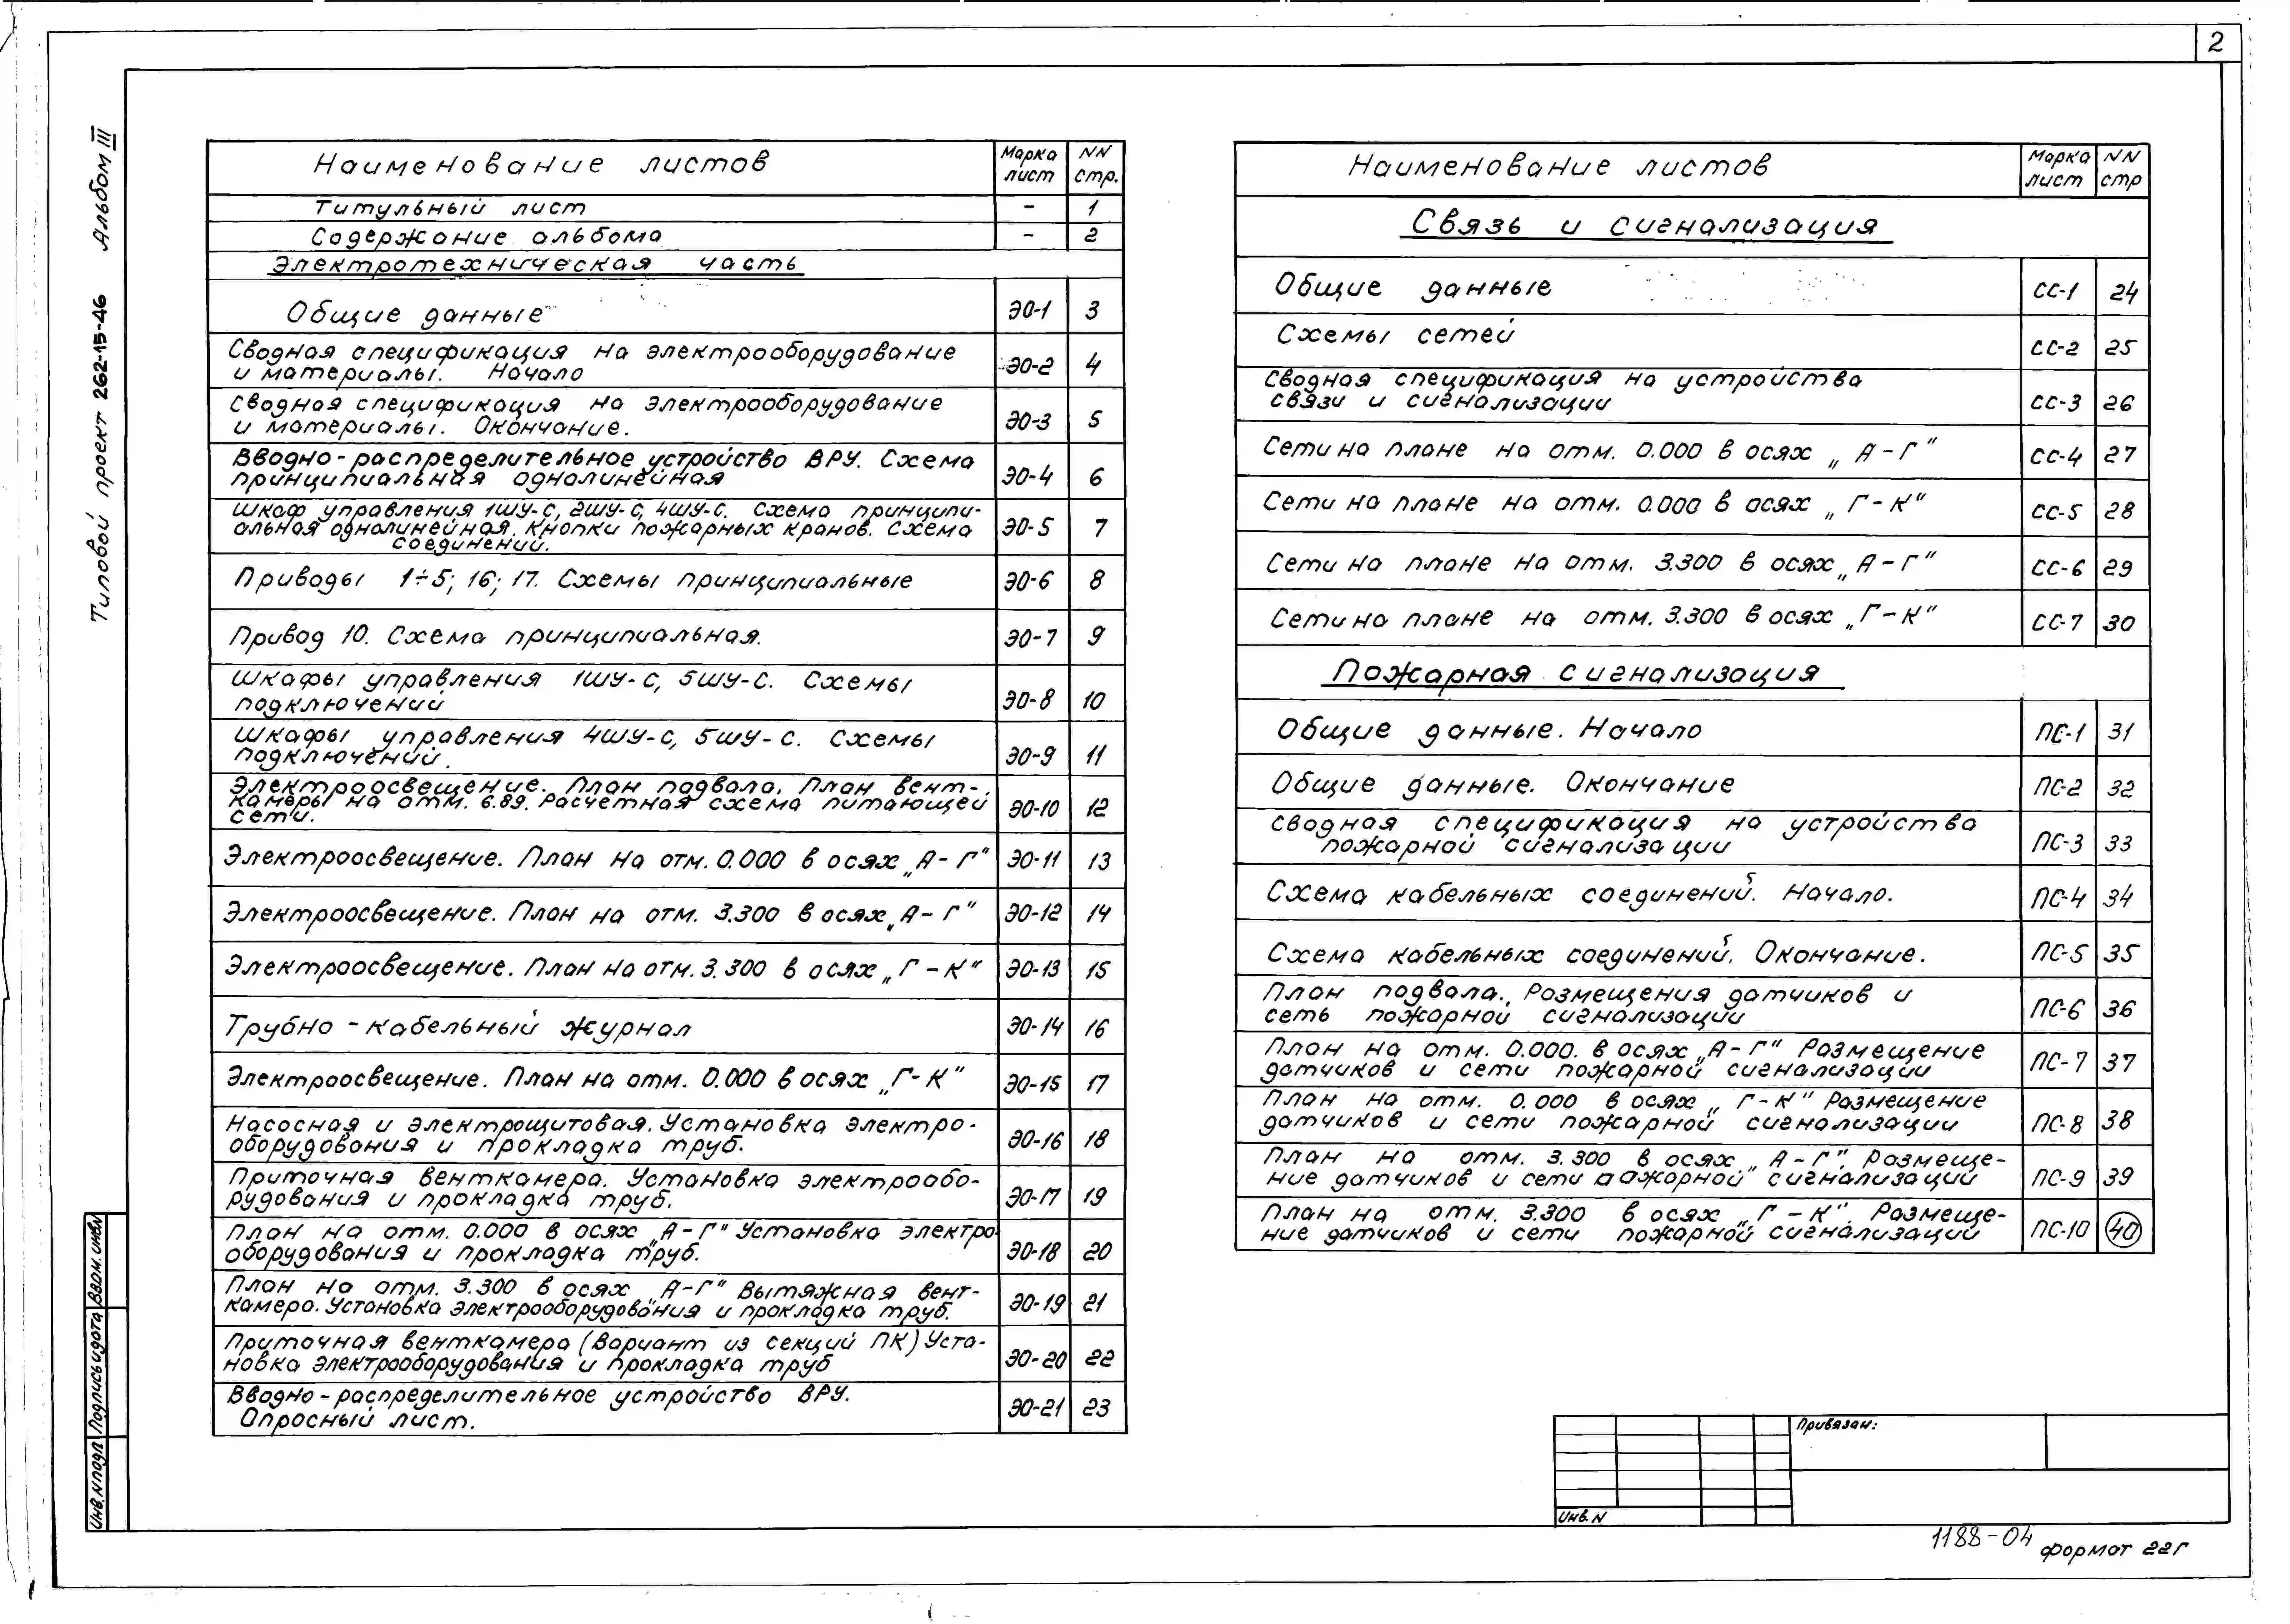 2
Типовой проект 262-15-46 Альбом III
Наименование листов Марка лист NN стр.
Титульный лист – 1
Содержание альбома – 2
Электротехническая часть
Общие данные ЭО-1 3
Сводная спецификация на электрооборудование
и материалы. Начало ЭО-2 4
Сводная спецификация на электрооборудование
и материалы. Окончание. ЭО-3 5
Вводно-распределительное устройство ВРУ. Схема
принципиальная однолинейная ЭО-4 6
Шкаф управления 1ШУ-С, 2ШУ-С, 4ШУ-С. Схема принципи-
альная однолинейная. Кнопки пожарных кранов. Схема
соединений. ЭО-5 7
Приводы 1÷5; 16; 17. Схемы принципиальные ЭО-6 8
Привод 10. Схема принципиальная. ЭО-7 9
Шкафы управления 1ШУ-С, 5ШУ-С. Схемы
подключений ЭО-8 10
Шкафы управления 4ШУ-С, 5ШУ-С. Схемы
подключений. ЭО-9 11
Электроосвещение. План подвала. План вент-
камеры на отм. 6.89. Расчетная схема питающей
сети. ЭО-10 12
Электроосвещение. План на отм. 0.000 в осях „А-Г" ЭО-11 13
Электроосвещение. План на отм. 3.300 в осях „А-Г" ЭО-12 14
Электроосвещение. План на отм. 3.300 в осях „Г-К" ЭО-13 15
Трубно-кабельный журнал ЭО-14 16
Электроосвещение. План на отм. 0.000 в осях „Г-К" ЭО-15 17
Насосная и электрощитовая. Установка электро-
оборудования и прокладка труб. ЭО-16 18
Приточная венткамера. Установка электрообо-
рудования и прокладка труб. ЭО-17 19
План на отм. 0.000 в осях „А-Г" Установка электро
оборудования и прокладка труб. ЭО-18 20
План на отм. 3.300 в осях „А-Г" Вытяжная вент-
камера. Установка электрооборудования и прокладка труб. ЭО-19 21
Приточная венткамера (Вариант из секций ПК) Уста-
новка электрооборудования и прокладка труб ЭО-20 22
Вводно-распределительное устройство ВРУ.
Опросный лист. ЭО-21 23
Наименование листов Марка лист NN стр
Связь и сигнализация
Общие данные СС-1 24
Схемы сетей СС-2 25
Сводная спецификация на устройства
связи и сигнализации СС-3 26
Сети на плане на отм. 0.000 в осях „А-Г" СС-4 27
Сети на плане на отм. 0.000 в осях „Г-К" СС-5 28
Сети на плане на отм. 3.300 в осях „А-Г" СС-6 29
Сети на плане на отм. 3.300 в осях „Г-К" СС-7 30
Пожарная сигнализация
Общие данные. Начало ПС-1 31
Общие данные. Окончание ПС-2 32
Сводная спецификация на устройства
пожарной сигнализации ПС-3 33
Схема кабельных соединений. Начало. ПС-4 34
Схема кабельных соединений. Окончание. ПС-5 35
План подвала. Размещения датчиков и
сеть пожарной сигнализации ПС-6 36
План на отм. 0.000. в осях „А-Г" Размещение
датчиков и сети пожарной сигнализации ПС-7 37
План на отм. 0.000 в осях „Г-К" Размещение
датчиков и сети пожарной сигнализации ПС-8 38
План на отм. 3.300 в осях „А-Г". Размеще-
ние датчиков и сети пожарной сигнализации ПС-9 39
План на отм. 3.300 в осях „Г-К". Размеще-
ние датчиков и сети пожарной сигнализации ПС-10 40
Инв.N подл Подпись и дата Взам. инв.N
Привязан:
Инв. N
1188-04
формат 22Г